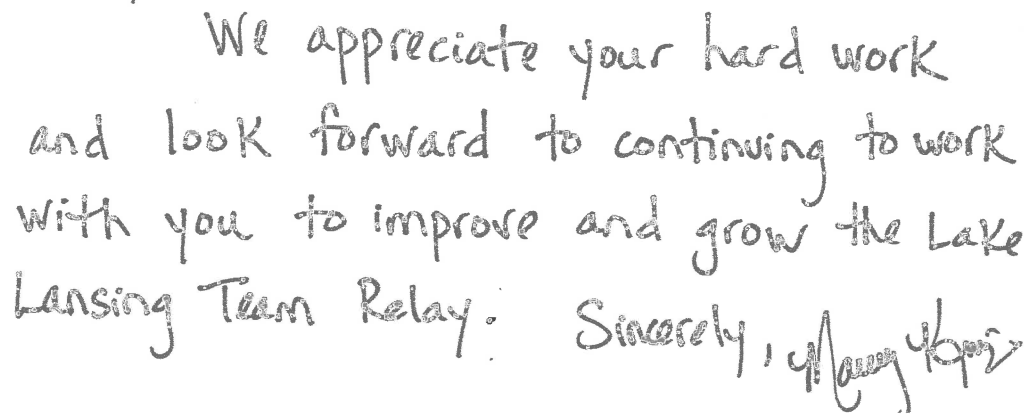 We appreciate your hard work
and look forward to continuing to work
with you to improve and grow the Lake
Lansing Team Relay. Sincerely,